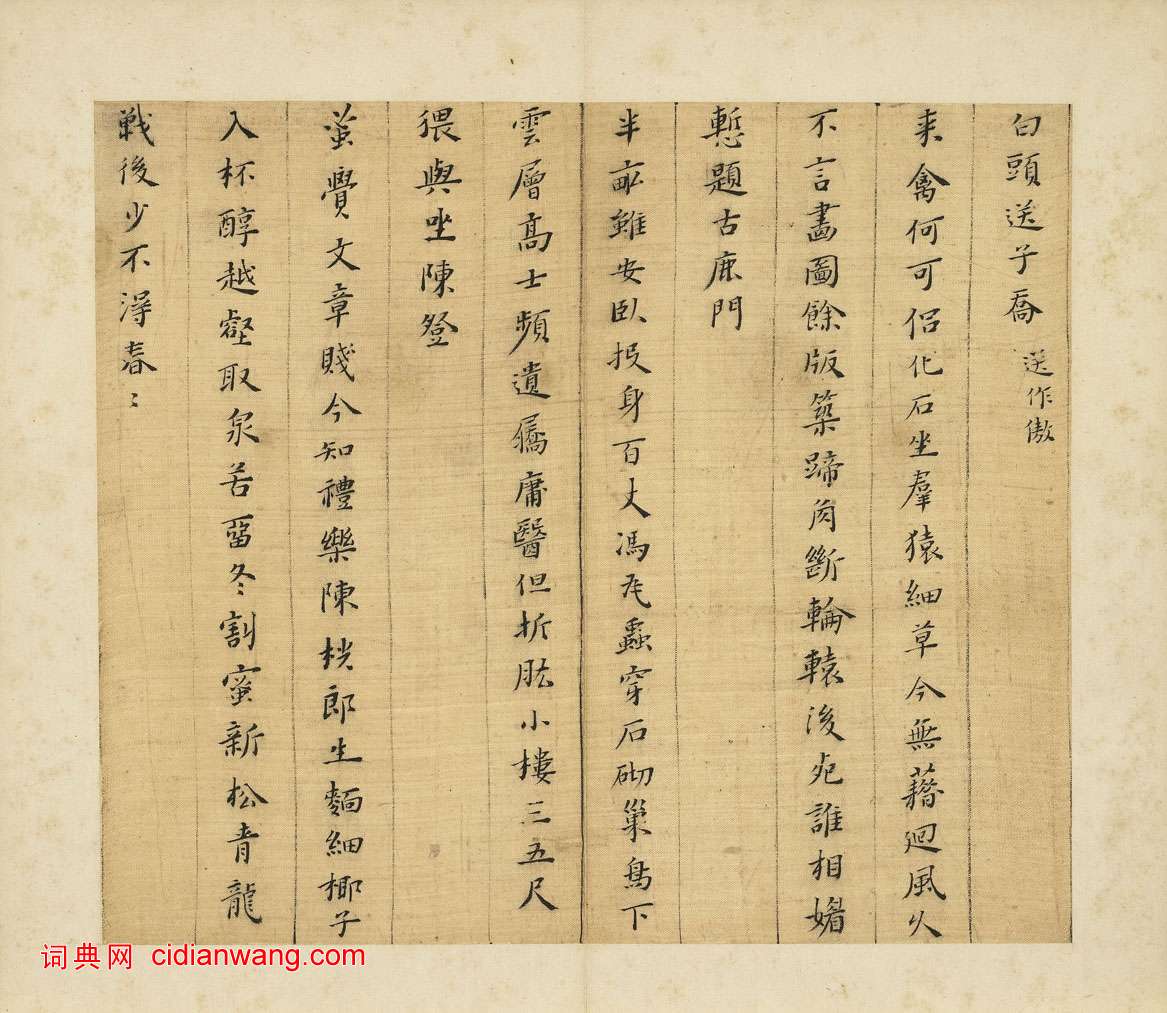 白頭送子喬 送作傲
来禽何可侶化石坐羣猿細草今無藉迴風久
不言畵圖餘版築蹄肉斷輪轅後死誰相媚
慙題古鹿門
半畝雖安臥投身百丈馮死蟲穿石砌巢鳥下
雲層高士頻遺屩庸醫但折肱小樓三五尺
猥與坐陳登
蛮賨文章賤今知禮樂陳桄郎生麵細椰子
入杯醇越壑取泉苦畱冬割蜜新松青龍
戰後少不得春〻
词典网 cidianwang.com